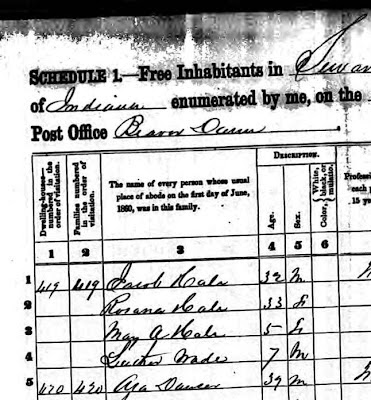 SCHEDULE 1.—Free Inhabitants in
of Indiana enumerated by me, on the
Post Office Beaver Dam
Dwelling-houses— numbered in the order of visitation.
Families numbered in the order of visitation.
The name of every person whose usual place of abode on the first day of June, 1860, was in this family.
DESCRIPTION.
Age.
Sex.
Color, White, black, or mulatto.
1 2 3 4 5 6
1 419 419 Jacob Hale 32 M
2 Rosana Hale 33 f
3 Mary A Hale 5 f
4 Luther Wade 7 M
5 420 420 Asa 39 M